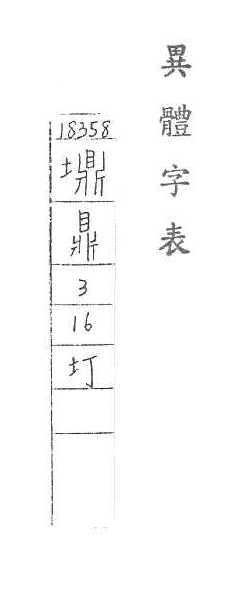 異體字表
18358
鼎
3
16
圢